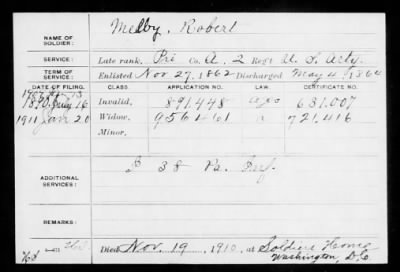 NAME OF SOLDIER: Melby, Robert
SERVICE: Late rank, Pri Co. A, 2 Regt U. S. Arty.
TERM OF SERVICE: Enlisted Nov 27, 1862 Discharged May 4, 1864
DATE OF FILING. CLASS. APPLICATION NO. CERTIFICATE NO.
1890 July 16 Invalid, 891.448 631.007
1911 Jan 20 Widow, 956161 a 721.416
Minor,
ADDITIONAL SERVICES: 38 Pa. Inf.
REMARKS:
Died Nov. 19, 1910, at Soldiers Home
Washington, D.C.